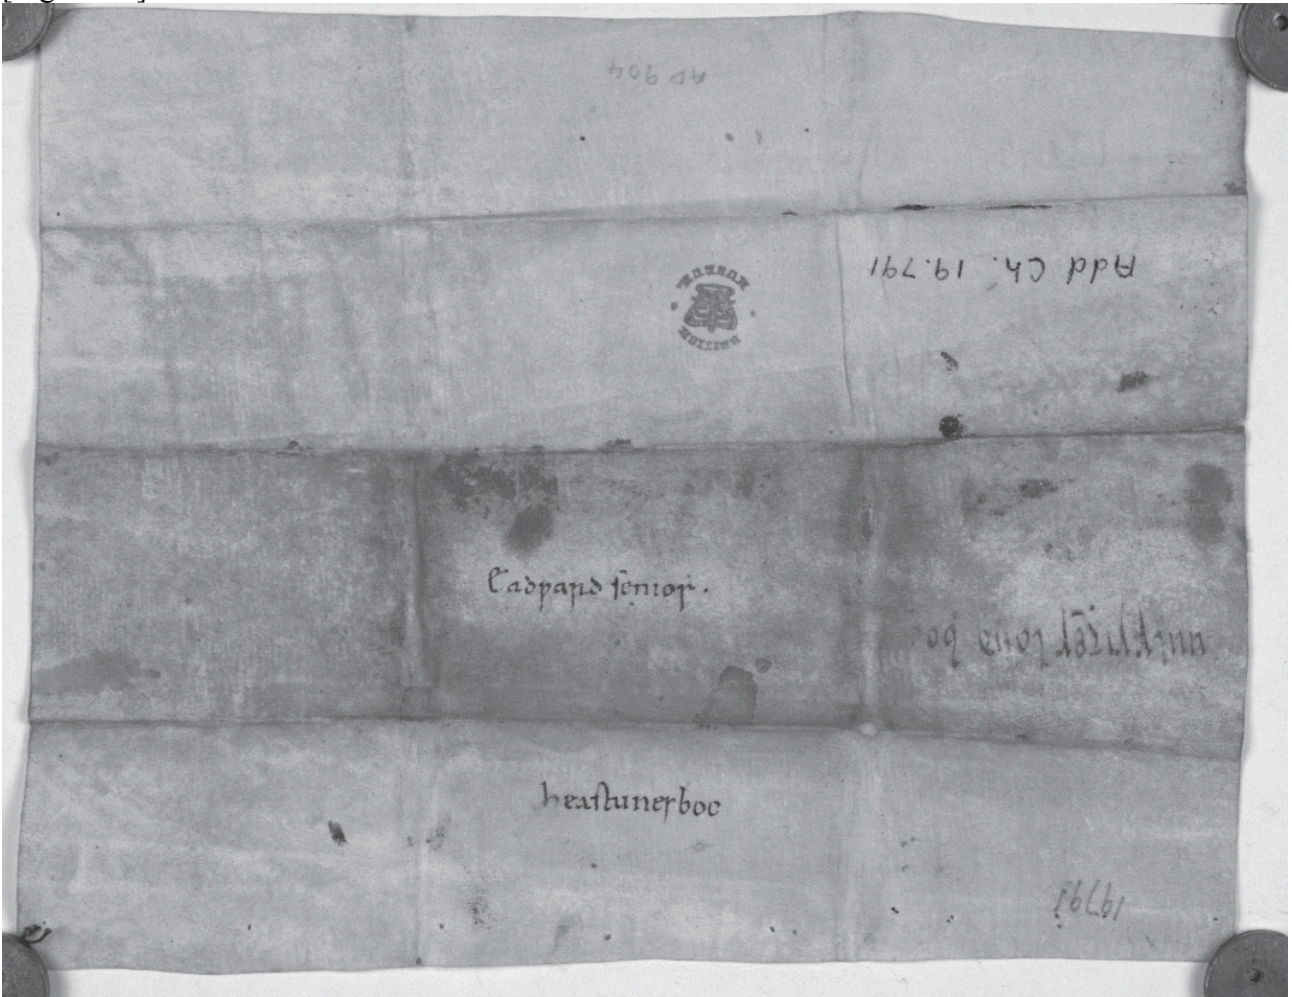 AD 904
Add Ch. 19.791
BRITISH MUSEUM
Eadƿard ſenior.
lond boc
heaſtuneſboc
19791